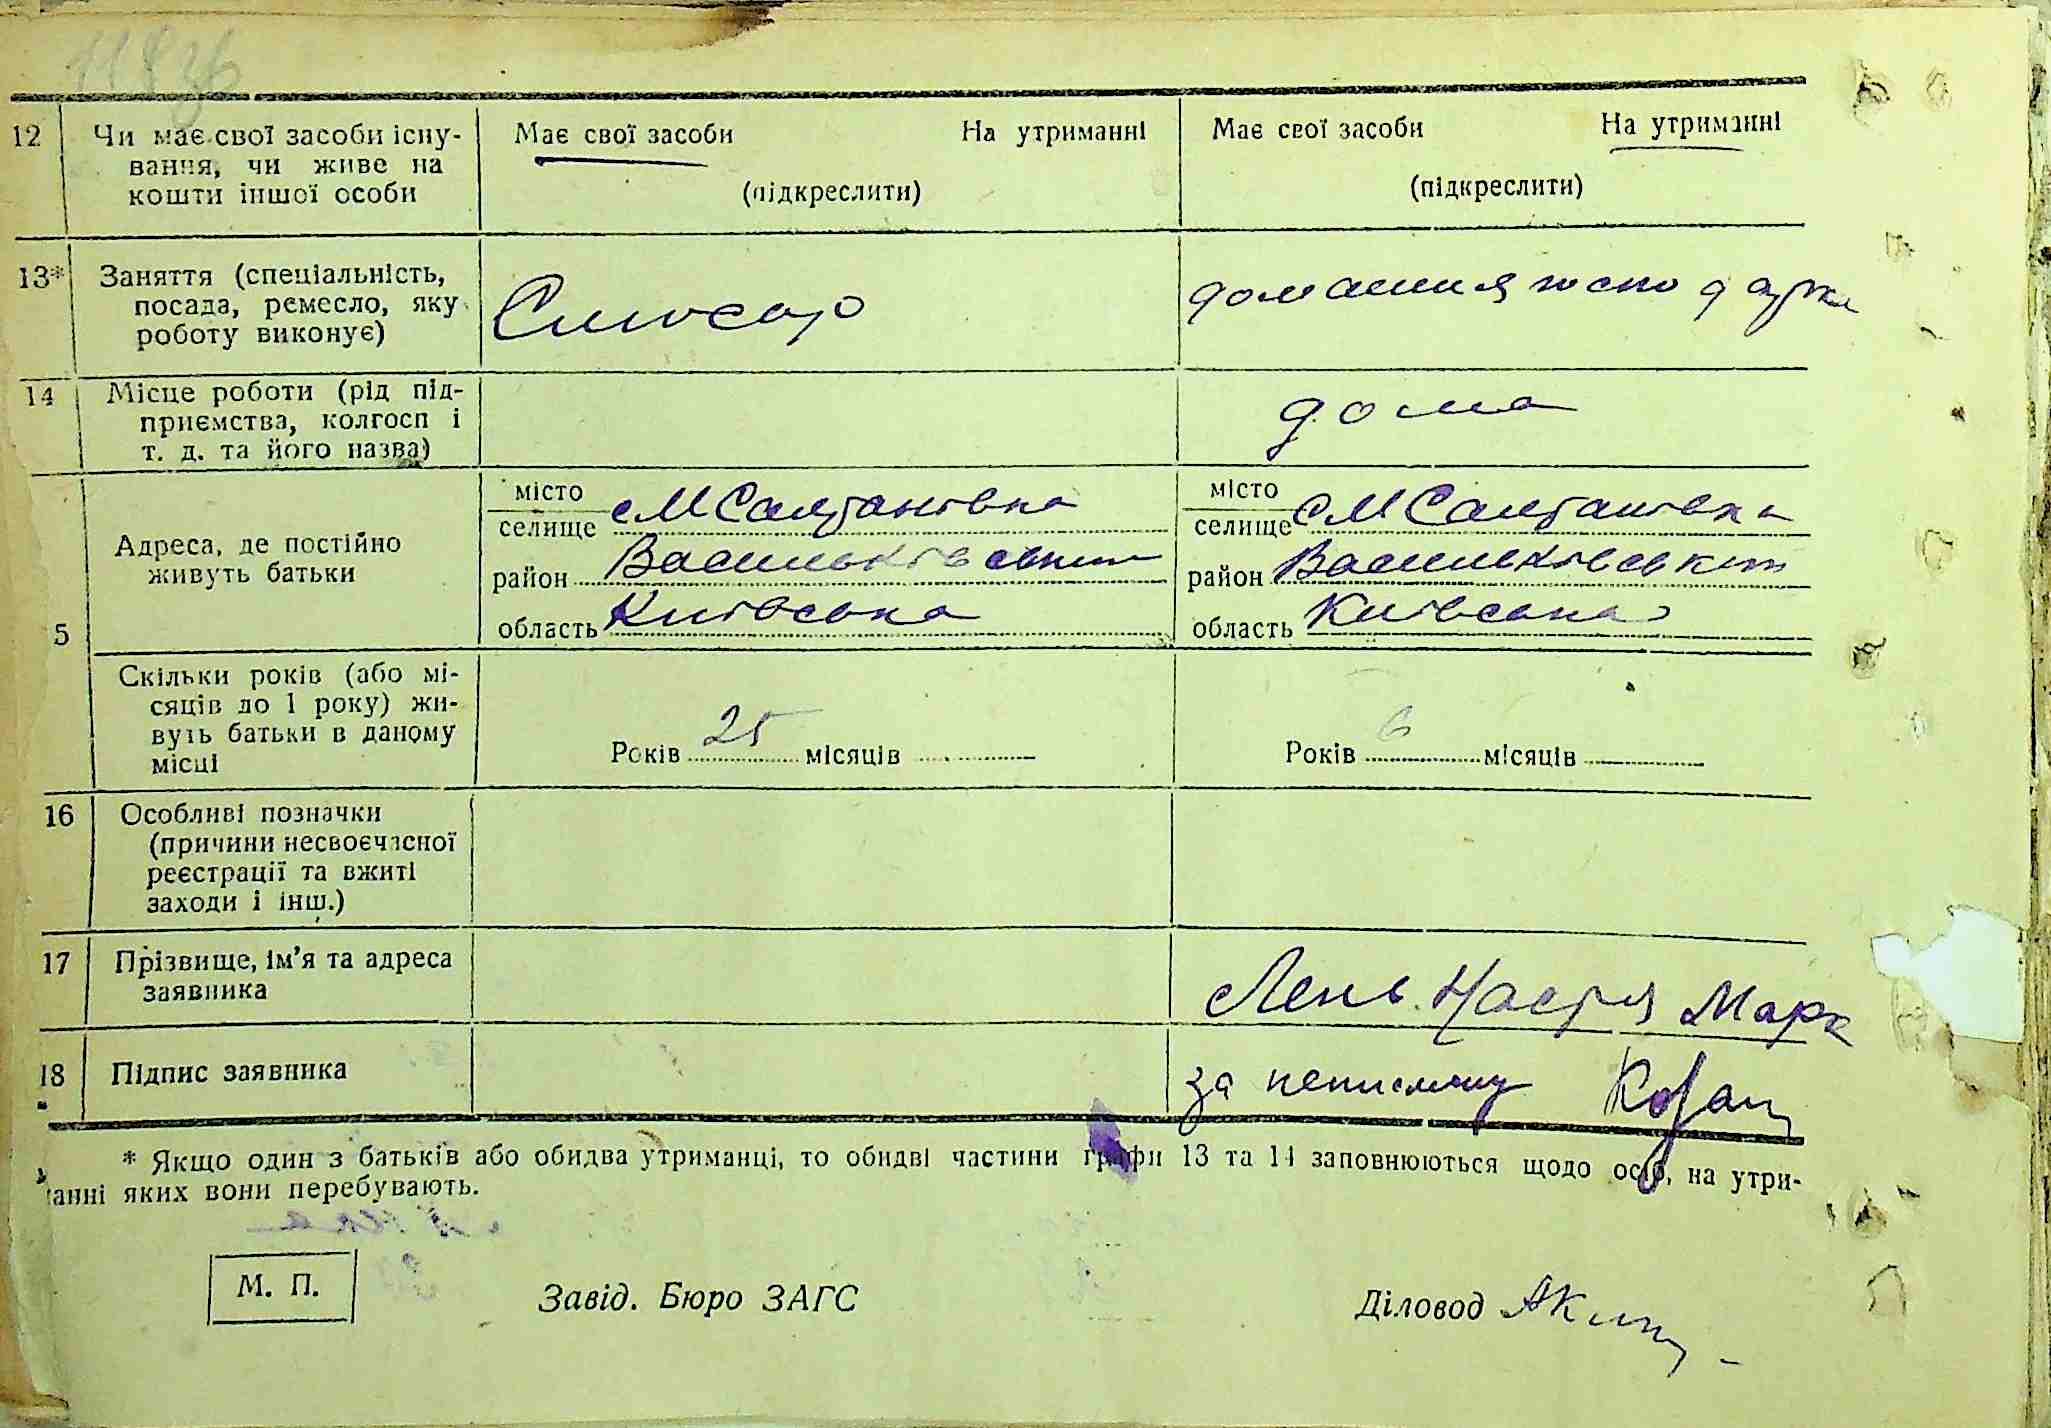 12 Чи має свої засоби існу-
вання, чи живе на
кошти іншої особи
Має свої засоби На утриманні
(підкреслити)
Має свої засоби На утриманні
(підкреслити)
13* Заняття (спеціальність,
посада, ремесло, яку
роботу виконує)
Слюсар
домашня господарка
14 Місце роботи (рід під-
приємства, колгосп і
т. д. та його назва)
дома
5 Адреса, де постійно
живуть батьки
місто
селище с М Салтанівка
район Васильківський
область Київська
місто
селище с М Салтанівка
район Васильківський
область Київська
Скільки років (або мі-
сяців до 1 року) жи-
вуть батьки в даному
місці
Років 25 місяців
Років 6 місяців
16 Особливі позначки
(причини несвоєчасної
реєстрації та вжиті
заходи і інш.)
17 Прізвище, ім'я та адреса
заявника
Лень Настя Марк
18 Підпис заявника
за неписьмену
* Якщо один з батьків або обидва утриманці, то обидві частини графи 13 та 14 заповнюються щодо осіб, на утри-
анні яких вони перебувають.
М. П.
Завід. Бюро ЗАГС
Діловод